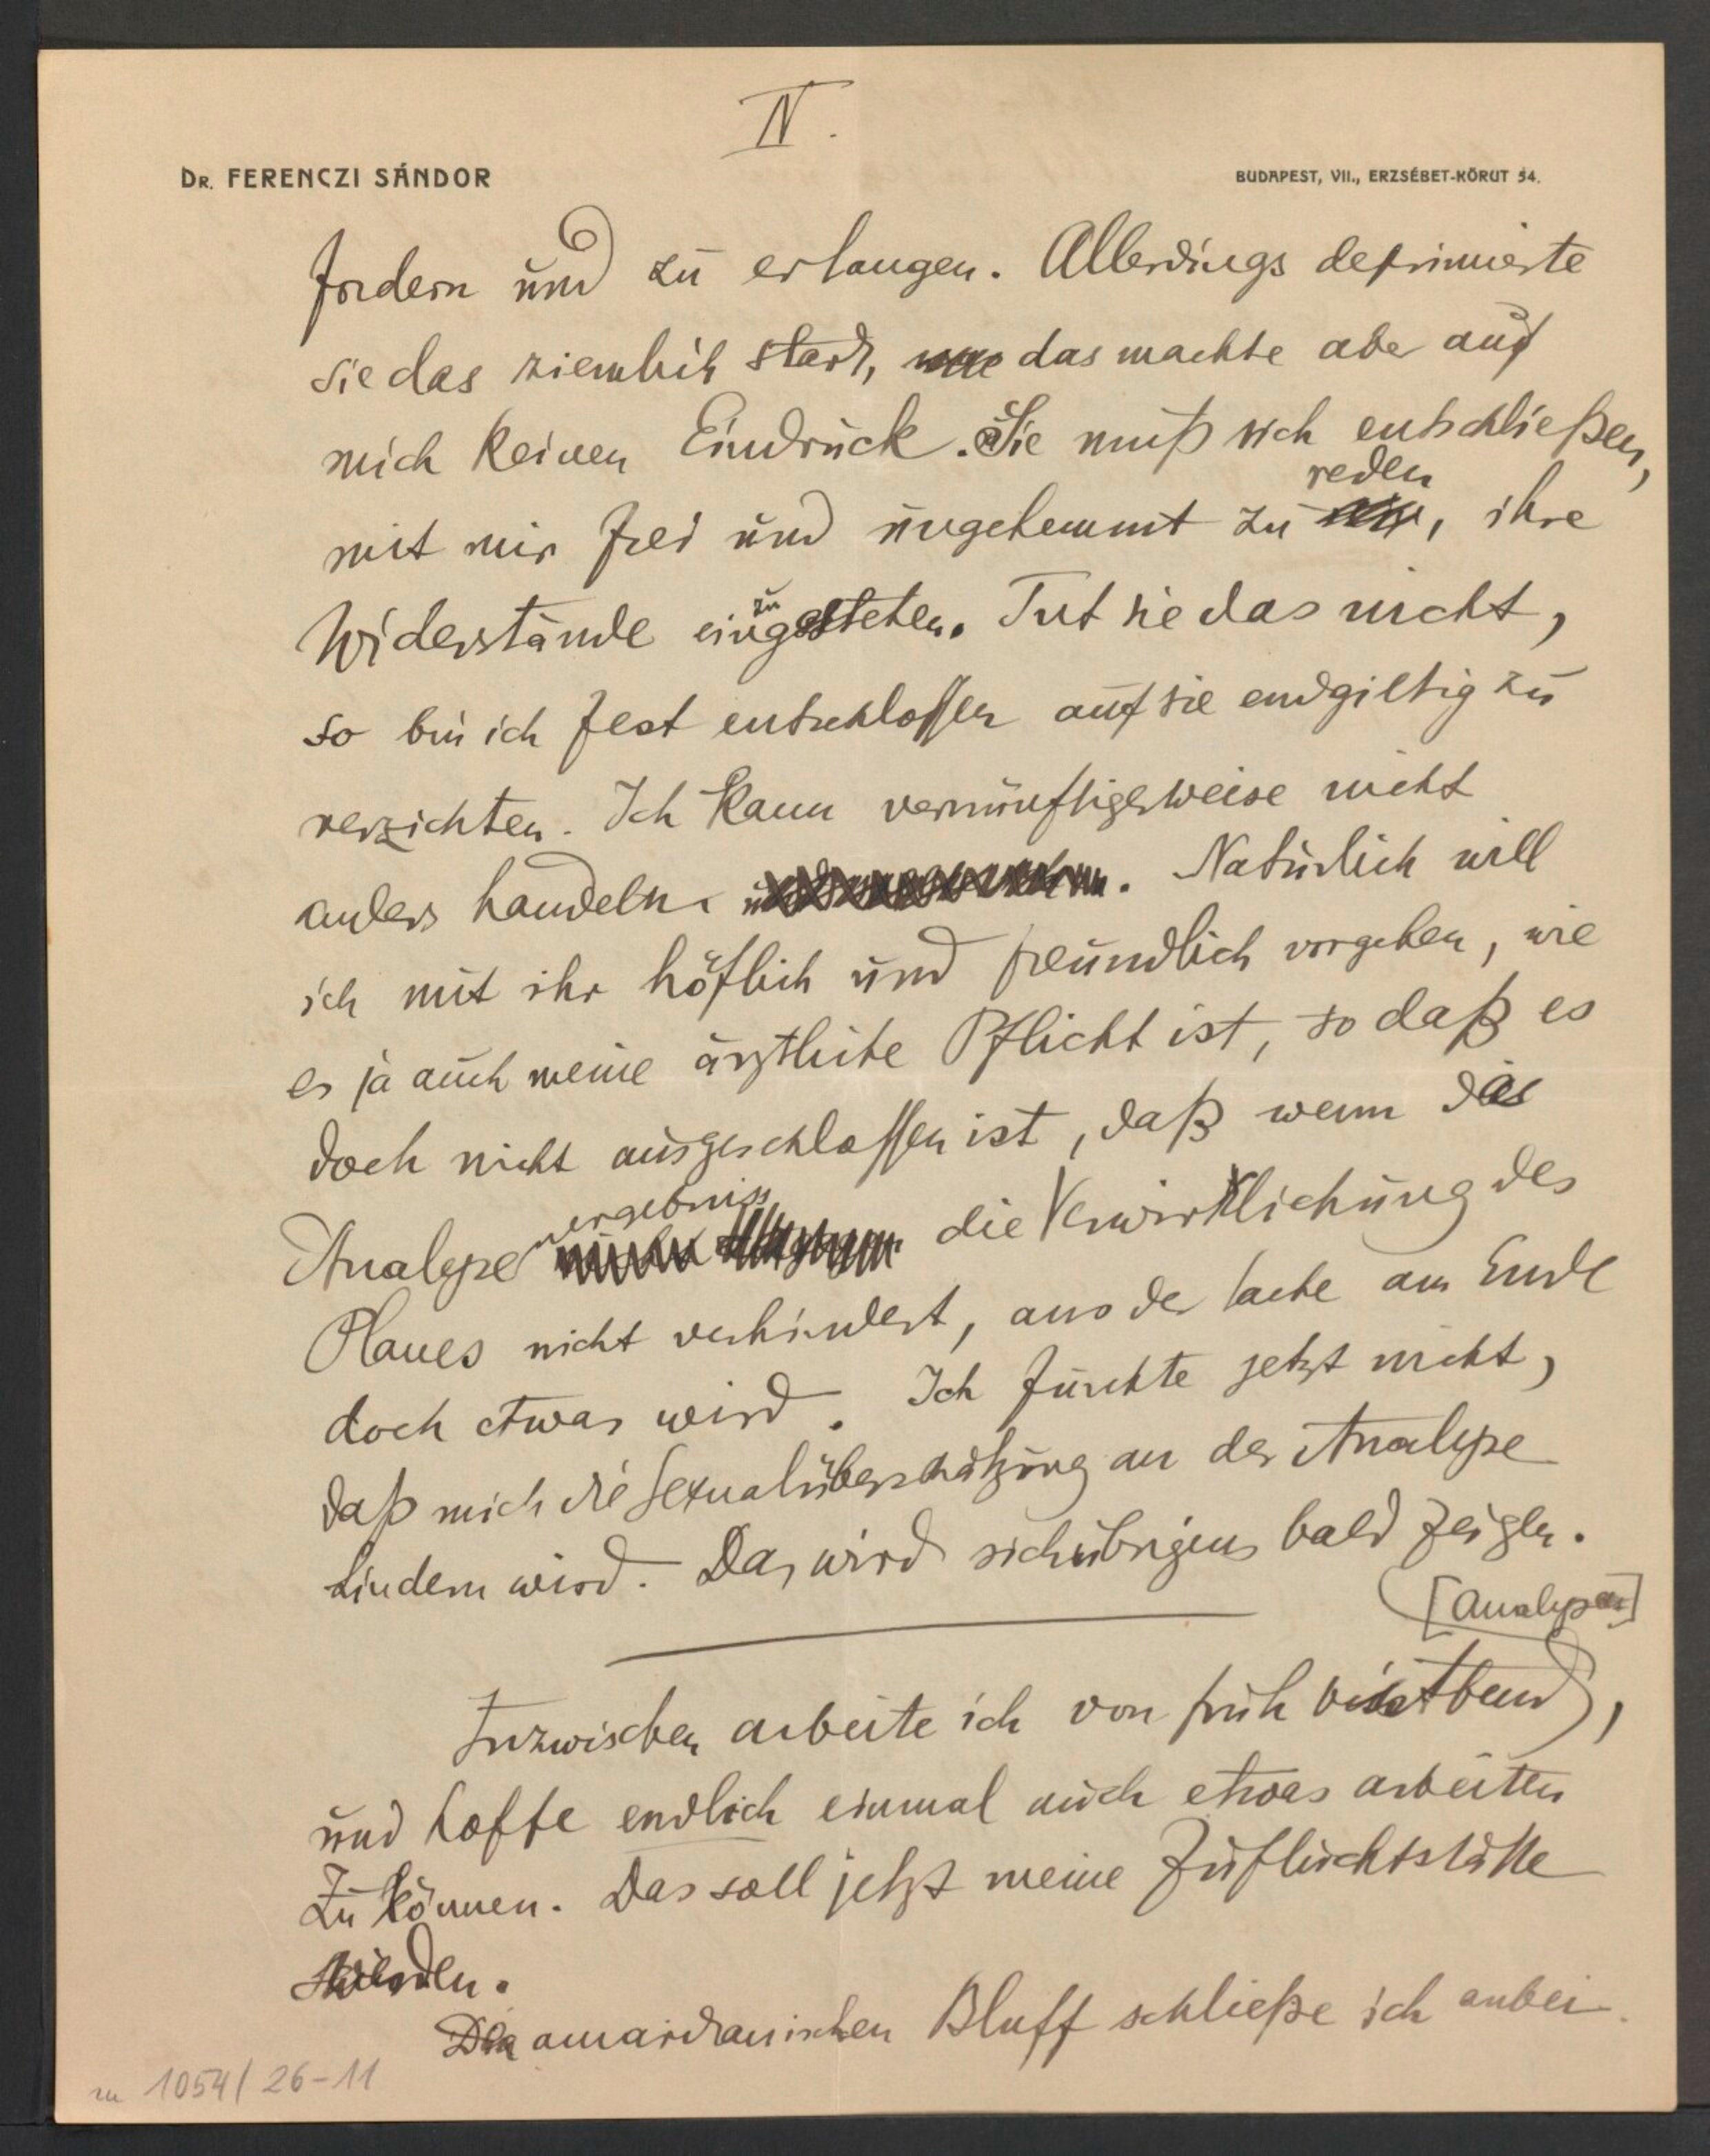 IV.
DR. FERENCZI SÁNDOR
BUDAPEST, VII., ERZSÉBET-KÖRUT 54.
fordern und zu erlangen. Allerdings deprimierte
sie das ziemlich stark, das machte aber auf
mich keinen Eindruck. Sie muß sich entschließen,
mit mir frei und ungehemmt zu reden, ihre
Widerstände einzugestehen. Tut sie das nicht,
so bin ich fest entschlossen auf sie endgiltig zu
verzichten. Ich kann vernünftigerweise nicht
anders handeln. Natürlich will
ich mit ihr höflich und freundlich vorgehen, wie
es ja auch meine ärztliche Pflicht ist, so daß es
doch nicht ausgeschlossen ist, daß wenn das
Analysenergebniss die Verwirklichung des
Planes nicht verhindert, aus der Sache am Ende
doch etwas wird. Ich fürchte jetzt nicht,
daß mich die Sexualüberschätzung an der Analyse
hindern wird. Das wird sich übrigens bald zeigen.
Inzwischen arbeite ich von früh bis Abend [Analysen],
und hoffe endlich einmal auch etwas arbeiten
zu können. Das soll jetzt meine Zufluchtsstätte
werden.
Den amerikanischen Bluff schließe ich anbei
zu 1054/26-11